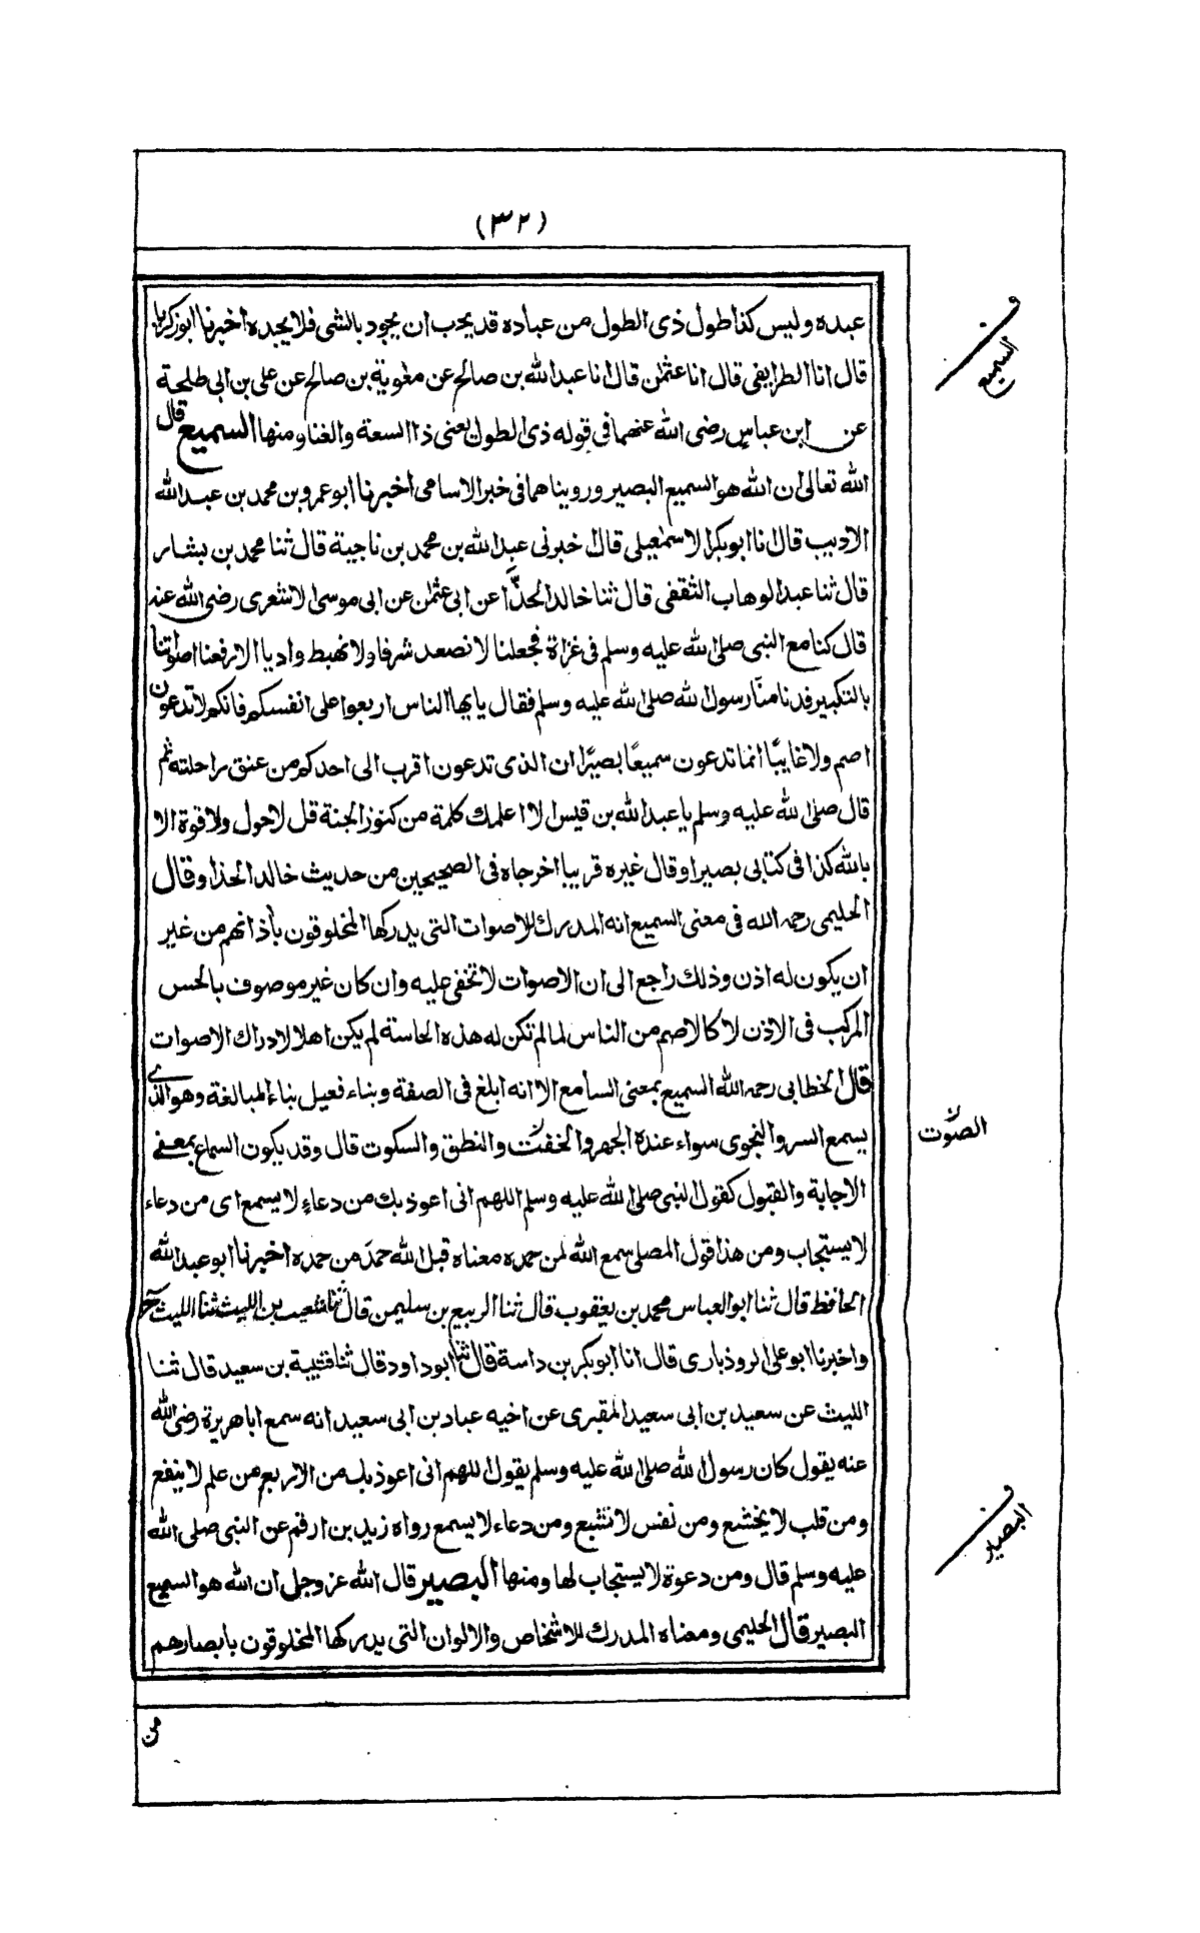 (٣٢)
عبده وليس كذا طول ذى الطول من عباده قد يحب ان يجود بالشى فلا يجده اخبرنا ابو زكريا
قال انا الطرايفى قال انا عثمٰن قال انا عبد الله بن صالح عن معٰوية بن صالح عن على بن ابى طلحة
عن ابن عباس رضى الله عنهما فى قوله ذى الطول يعنى ذا السعة والغنا ومنها السميع قال
الله تعالى ان الله هو السميع البصير ورويناهما فى خبر الاسامى اخبرنا ابو عمرو بن محمد بن عبد الله
الاديب قال نا ابو بكر الاسمٰعيلى قال خبرنى عبد الله بن محمد بن ناجية قال ثنا محمد بن بشار
قال ثنا عبد الوهاب الثقفى قال ثنا خالد الحذّا عن ابى عثمٰن عن ابى موسىٰ لاشعرى رضى الله عنه
قال كنا مع النبى صلى الله عليه وسلم فى غزاة فجعلنا لا نصعد شرفا ولا نهبط واديا الا رفعنا اصواتنا
بالتكبير فدنا منّا رسول الله صلى الله عليه وسلم فقال يايها الناس اربعوا على انفسكم فانكم لا تدعون
اصم ولا غايبًا انما تدعون سميعًا بصيرًا ان الذى تدعون اقرب الى احدكم من عنق راحلته ثم
قال صلى الله عليه وسلم يا عبد الله بن قيس الا اعلمك كلمة من كنوز الجنة قل لا حول ولا قوة الا
بالله كذا فى كتابى بصيرا وقال غيره قريبا اخرجاه فى الصحيحين من حديث خالد الحذا وقال
الحليمى رحمه الله فى معنى السميع انه المدرك للاصوات التى يدركها المخلوقون بأذانهم من غير
ان يكون له اذن وذلك راجع الى ان الاصوات لا تخفى عليه وان كان غير موصوف بالحس
المركب فى الاذن لا كالاصم من الناس لما لم تكن له هذه الحاسة لم يكن اهلا لادراك الاصوات
قال الخطابى رحمه الله السميع بمعنى السامع الا انه ابلغ فى الصفة وبناء فعيل بناء المبالغة وهو الذى
يسمع السر والنجوى سواء عنده الجهر والخفت والنطق والسكوت قال وقد يكون السماع بمعنى
الاجابة والقبول كقول النبى صلى الله عليه وسلم اللهم انى اعوذ بك من دعاءٍ لا يسمع اى من دعاء
لا يستجاب ومن هذا قول المصلى سمع الله لمن حمده معناه قبل الله حمدَ من حمده اخبرنا ابو عبد الله
الحافظ قال ثنا ابو العباس محمد بن يعقوب قال ثنا الربيع بن سليمن قال ثنا شعيب بن الليث ثنا الليث ح
واخبرنا ابو على الروذبارى قال انا ابو بكر بن داسة قال ثنا ابو داود قال ثنا قتيبة بن سعيد قال ثنا
الليث عن سعيد بن ابى سعيد المقبرى عن اخيه عباد بن ابى سعيد انه سمع ابا هريرة رضى الله
عنه يقول كان رسول الله صلى الله عليه وسلم يقول اللهم انى اعوذ بك من الاربع من علم لا ينفع
ومن قلب لا يخشع ومن نفس لا تشبع ومن دعاء لا يسمع رواه زيد بن ارقم عن النبى صلى الله
عليه وسلم قال ومن دعوة لا يستجاب لها ومنها البصير قال الله عز وجل ان الله هو السميع
البصير قال الحليمى ومعناه المدرك للاشخاص والالوان التى يدركها المخلوقون بابصارهم
من
السميع
الصَّوت
البصير